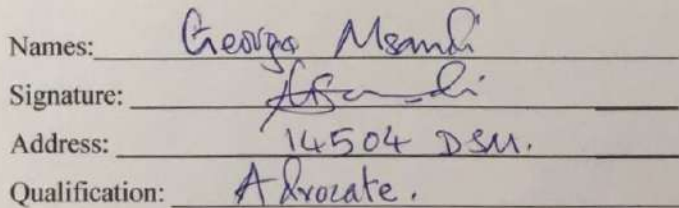 Names: George Msandi
Signature:
Address: 14504 DSM.
Qualification: Advocate.